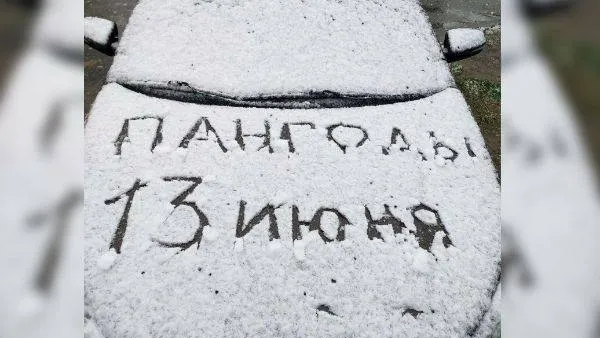 ПАНГОДЫ
13 июня